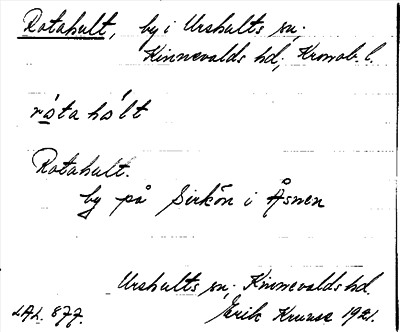 Rotahult, by i Urshults sn;
Kinnevalds hd; Kronob. l.
ró̱ta hólt
Rotahult.
by på Sirkön i Åsnen
Urshults sn; Kinnevalds hd.
LAL. 877.
Erik Kruuse 1921.